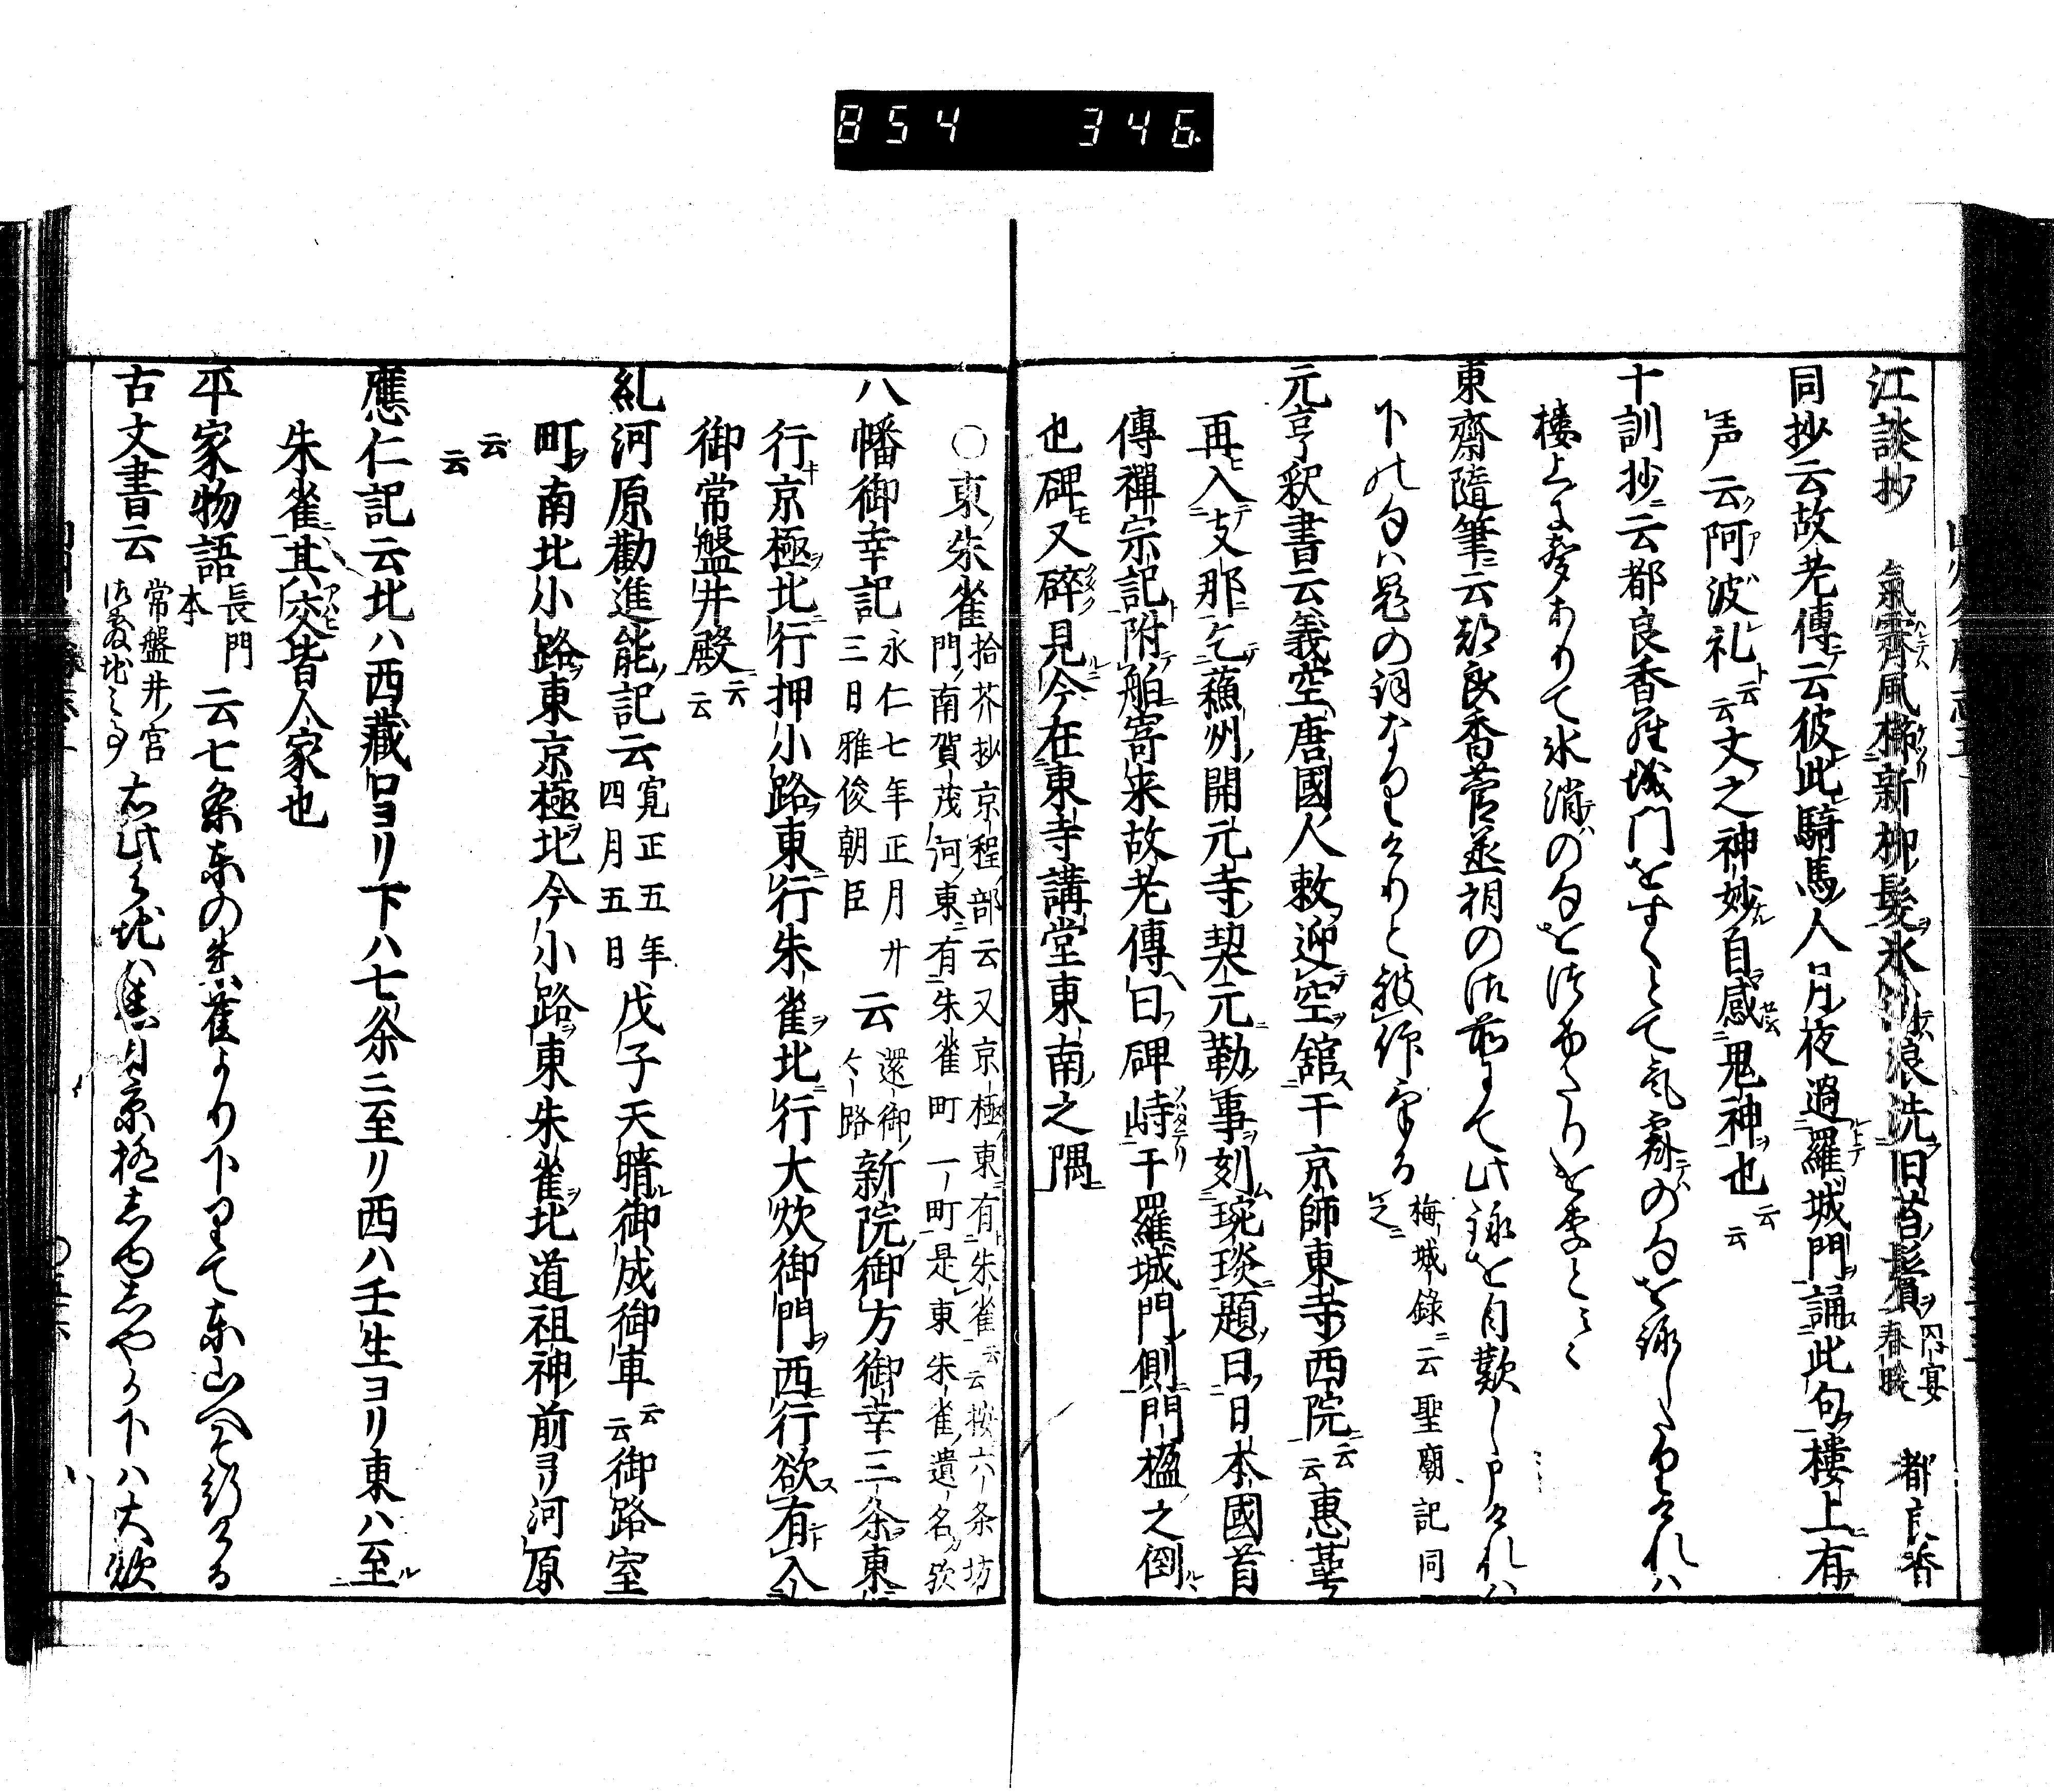 854 346
江談抄 氣霽風梳新柳髮氷消浪洗旧苔鬚 内宴春暖 都良香
同抄云故老傳云彼此騎馬人月夜過羅城門誦此句樓上有
声云阿波礼云云文之神妙自感鬼神也云云
十訓抄云都良香羅城門をすくとて氣霽の句を詠したりけれハ
楼上に声ありて氷消の句を
東齋隨筆云都良香菅丞相の御前にて此詠を自歎し申けれハ
下の句ハ鬼の詞なりけりと被仰ける 梅城録云聖廟記同之
元亨釈書云義空唐國人敕迎空舘于京師東寺西院云云惠萼
再入支那乞蘓州開元寺契元勒事刻琬琰題曰日本國首
傳禪宗記附舶寄来故老傳曰碑峙于羅城門側門楹之倒
也碑又碎見今在東寺講堂東南之隅
○東朱雀 拾芥抄京程部云又京極東有朱雀云云按六条坊
門南賀茂河東有朱雀町一町是東朱雀遺名歟
八幡御幸記 永仁七年正月廿三日雅俊朝臣 云 還御路 新院御方御幸三条東
行京極北行押小路東行朱雀北行大炊御門西行欲有入
御常盤井殿云云
糺河原勸進能記云 寛正五年四月五日 戊子天晴御成御車云云御路室
町南北小路東京極北今小路東朱雀北道祖神前ヨリ河原
云云
應仁記云北ハ西藏口ヨリ下ハ七条ニ至リ西ハ壬生ヨリ東ハ至
朱雀其交皆人家也
平家物語 長門本 云七条東の朱雀より下りて東山へそ行ける
古文書云 常盤井宮御敷地之事 右此敷地ハ 京極 下ハ大炊